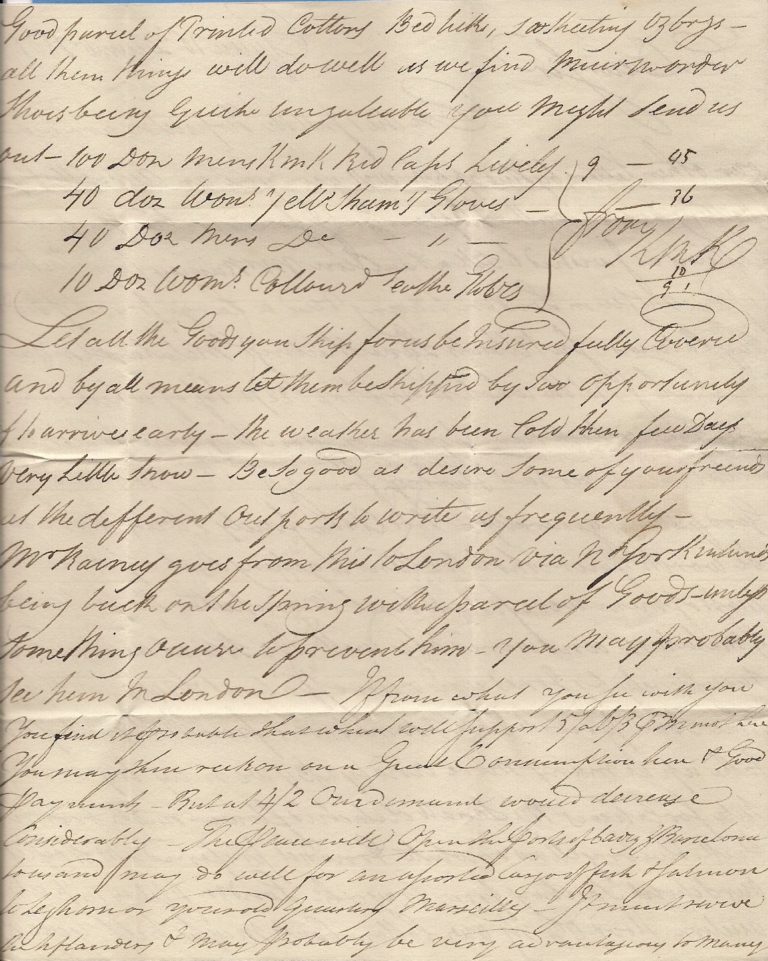 Good parcel of Printed Cottons Bed ticks, Sheeting Ozbrgs –
all them things will do well as we find Muir under
Thoes being Quite unsaleable you Might Send us
out – 100 Doz Mens Kmk Red Caps Lively 9 – 45
40 doz Woms Yellw Sham'y Gloves – – 36
40 Doz Mens Do – " – from Kmk
10 Doz Woms Collourd Leathr Gloves 10
9 1
Let all the Goods you Ship for us be Insured fully Coverd
and by all means let them be Shippd by Two Opportunety
to arrive early – the weather has been Cold then few Days
Very Little Snow – Be So good as desire Some of your freinds
at the defferent Out ports to write us frequently –
Mr Rainey goes from this to London via N York
being back on the Spring with a parcel of Goods – unless
Something Occurs to prevent him – you May probably
See him In London – If from what you See with you
You find it probable that wheat will Support not here
You may then reckon on a Great Consumption here & Good
payments – But at 4/2 Our demand would decrease
Considerably – The peace will Open the ports of Cadiz & Barcelona
to us and may do well for an asorted Cargo of fish & Salmon
to Leghorn or your old Quarters Marseilles – It must revive
flanders & may probably be very advantagious to Many